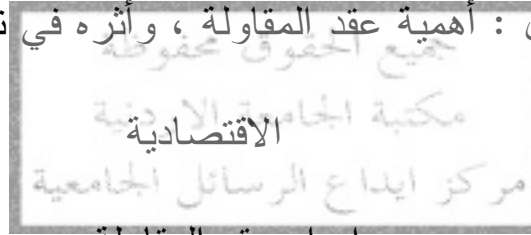 : أهمية عقد المقاولة ، وأثره في
جميع الحقوق محفوظة
مكتبة الجامعة الاردنية
الاقتصادية
مركز ايداع الرسائل الجامعية